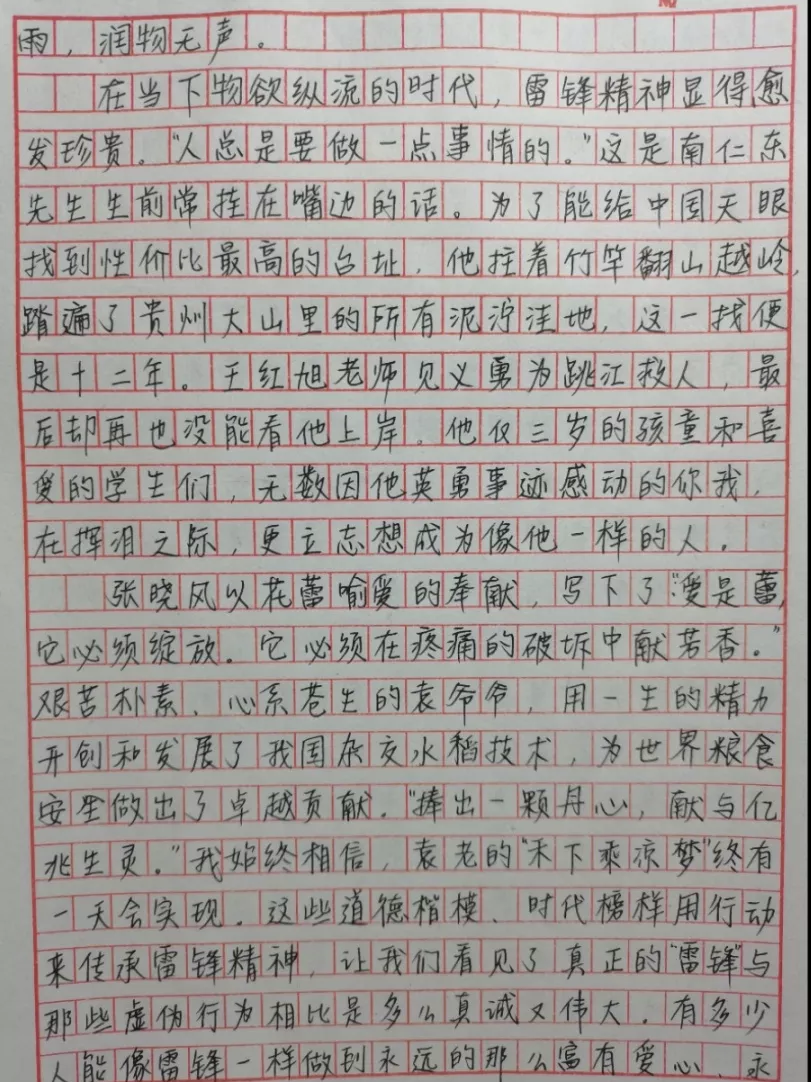 雨，润物无声。
在当下物欲纵流的时代，雷锋精神显得愈
发珍贵。“人总是要做一点事情的。”这是南仁东
先生生前常挂在嘴边的话。为了能给中国天眼
找到性价比最高的台址，他拄着竹竿翻山越岭，
踏遍了贵州大山里的所有泥泞洼地，这一找便
是十二年。王红旭老师见义勇为跳江救人，最
后却再也没能看他上岸。他仅三岁的孩童和喜
爱的学生们，无数因他英勇事迹感动的你我，
在挥泪之际，更立志想成为像他一样的人。
张晓风以花蕾喻爱的奉献，写下了“爱是蕾，
它必须绽放。它必须在疼痛的破坼中献芳香。”
艰苦朴素、心系苍生的袁爷爷，用一生的精力
开创和发展了我国杂交水稻技术，为世界粮食
安全做出了卓越贡献。“捧出一颗丹心，献与亿
兆生灵。”我始终相信，袁老的“禾下乘凉梦”终有
一天会实现。这些道德楷模、时代榜样用行动
来传承雷锋精神，让我们看见了真正的“雷锋”与
那些虚伪行为相比是多么真诚又伟大。有多少
人能像雷锋一样做到永远的那么富有爱心、永